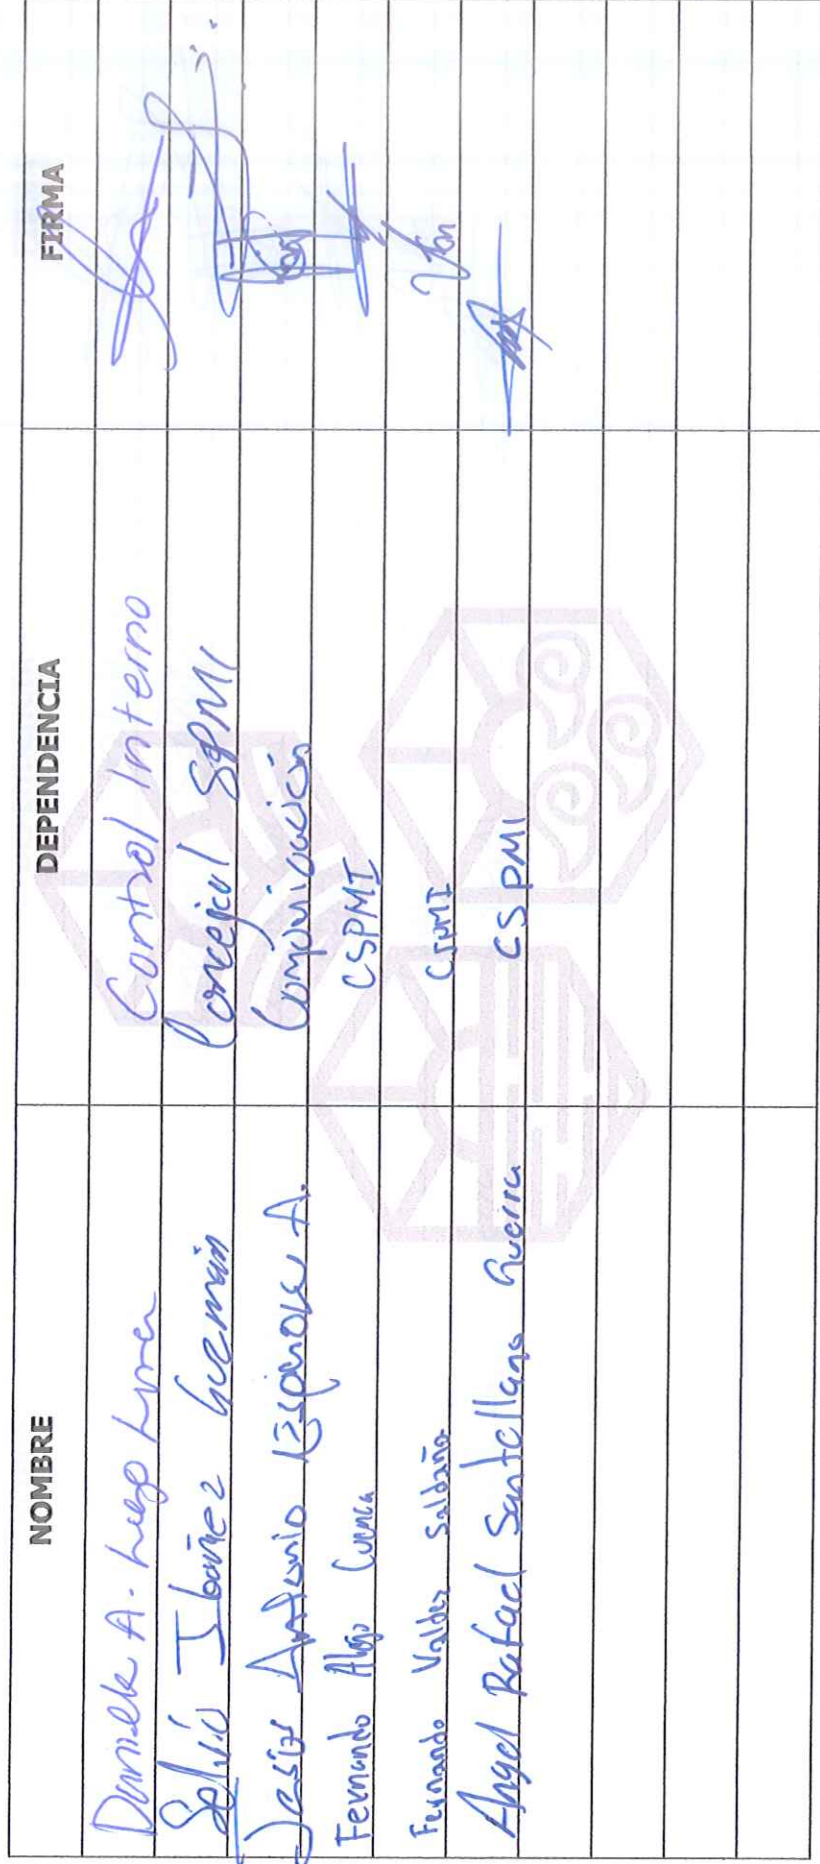 NOMBRE DEPENDENCIA FIRMA
Daniela A. Lugo Luna Control Interno
Selvio Ibañez Guzmán Concejal SPMI
Jesús Antonio Espinoza A. Comunicación
Fernando Alejo Cuenca CSPMI
Fernando Valdez Saldaña CSPMI
Angel Rafael Santellano Guerra CSPMI